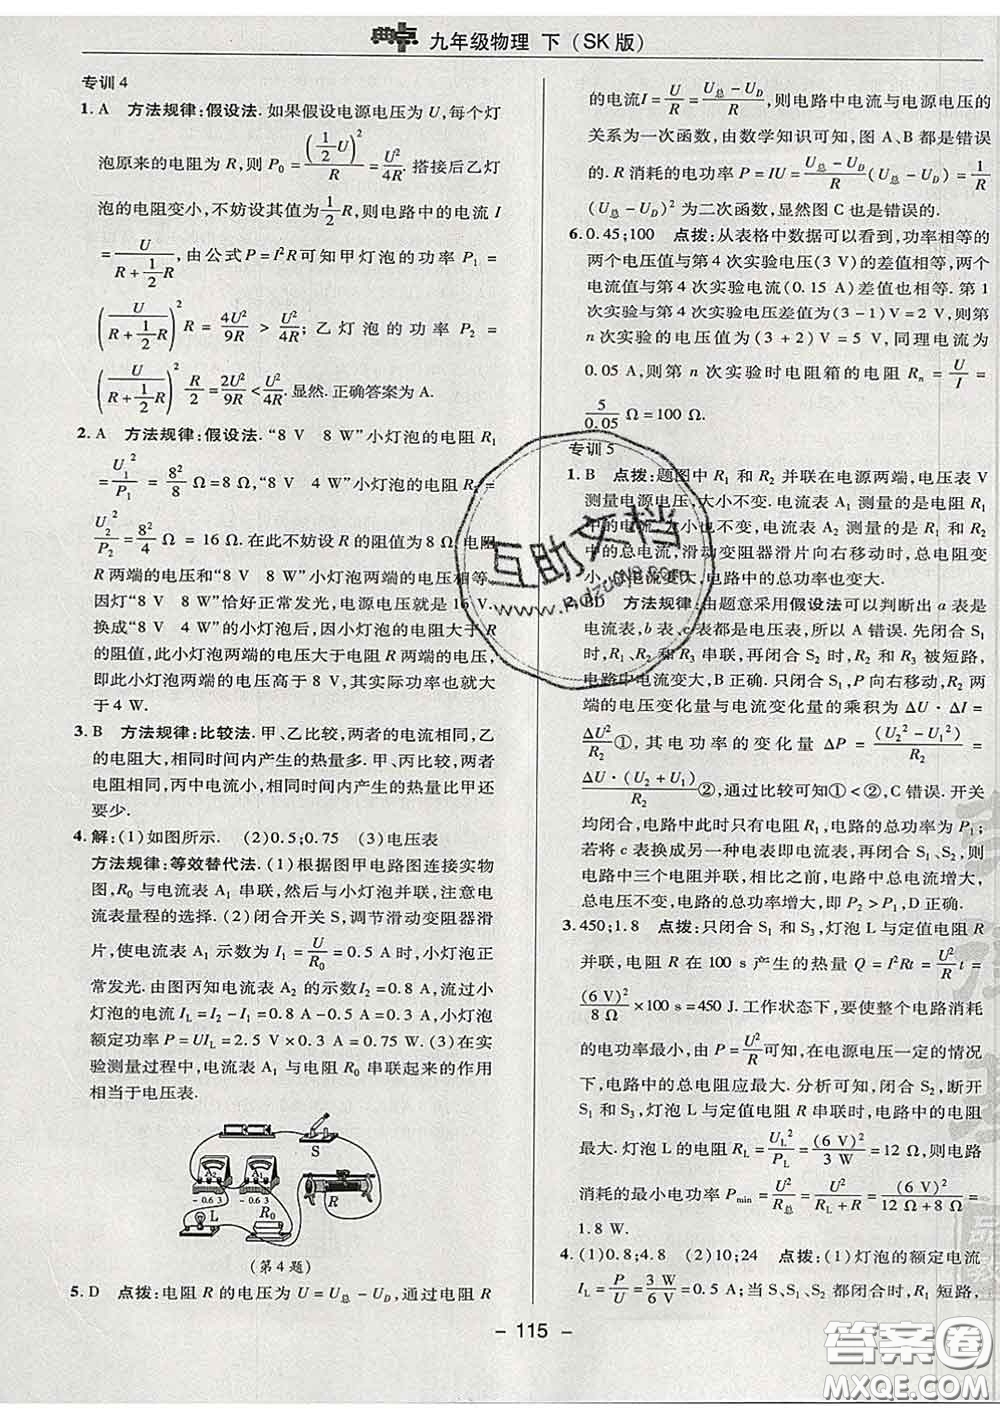 典中点 九年级物理 下 (SK版)
专训4
1. A 方法规律:假设法. 如果假设电源电压为 U,每个灯
泡原来的电阻为 R,则 P₀ = (½U)²/R = U²/4R. 搭接后乙灯
泡的电阻变小,不妨设其值为½R,则电路中的电流 I
= U/(R+½R),由公式 P = I²R 可知甲灯泡的功率 P₁ =
(U/(R+½R))² R = 4U²/9R > U²/4R;乙灯泡的功率 P₂ =
(U/(R+½R))² R/2 = 2U²/9R < U²/4R. 显然. 正确答案为 A.
2. A 方法规律:假设法. “8 V 8 W”小灯泡的电阻 R₁
= U₁²/P₁ = 8²/8 Ω = 8 Ω,“8 V 4 W”小灯泡的电阻 R₂ =
U₂²/P₂ = 8²/4 Ω = 16 Ω. 在此不妨设 R 的阻值为 8 Ω,电阻
R 两端的电压和“8 V 8 W”小灯泡两端的电压相等.
因灯“8 V 8 W”恰好正常发光,故电源电压就是 16 V.
换成“8 V 4 W”小灯泡后,因小灯泡的电阻大于 R
的阻值,此小灯泡两端的电压大于电阻 R 两端的电压,
即此小灯泡两端的电压高于 8 V,其实际功率也就大
于 4 W.
3. B 方法规律:比较法. 甲、乙比较,两者的电流相同,乙
的电阻大,相同时间内产生的热量多. 甲、丙比较,两者
电阻相同,丙中电流小,相同时间内产生的热量比甲还
要少.
4. 解:(1)如图所示. (2)0.5;0.75 (3)电压表
方法规律:等效替代法. (1)根据图甲电路图连接实物
图,R₀ 与电流表 A₁ 串联,然后与小灯泡并联,注意电
流表量程的选择. (2)闭合开关 S,调节滑动变阻器滑
片,使电流表 A₁ 示数为 I₁ = U/R₀ = 0.5 A 时,小灯泡正
常发光. 由图丙知电流表 A₂ 的示数 I₂ = 0.8 A,通过小
灯泡的电流 I_L = I₂ − I₁ = 0.8 A − 0.5 A = 0.3 A,小灯泡
额定功率 P = UI_L = 2.5 V × 0.3 A = 0.75 W. (3)在实
验测量过程中,电流表 A₁ 与电阻 R₀ 串联起来的作用
相当于电压表.
S
A₂ A₁
- 0.6 3 - 0.6 3 R
L R₀
(第 4 题)
5. D 点拨:电阻 R 的电压为 U = U总 − U_D,通过电阻 R
的电流 I = U/R = (U总 − U_D)/R,则电路中电流与电源电压的
关系为一次函数,由数学知识可知,图 A、B 都是错误
的. R 消耗的电功率 P = IU = (U总 − U_D)/R (U总 − U_D) = 1/R
(U总 − U_D)² 为二次函数,显然图 C 也是错误的.
6. 0.45;100 点拨:从表格中数据可以看到,功率相等的
两个电压值与第 4 次实验电压(3 V)的差值相等,两个
电流值与第 4 次实验电流(0.15 A)差值也相等. 第 1
次实验与第 4 次实验电压差值为(3 − 1) V = 2 V,则第
n 次实验的电压值为(3 + 2) V = 5 V,同理电流为
0.05 A,则第 n 次实验时电阻箱的电阻 Rₙ = U/I =
5/0.05 Ω = 100 Ω.
专训5
1. B 点拨:题图中 R₁ 和 R₂ 并联在电源两端,电压表 V
测量电源电压,大小不变. 电流表 A₁ 测量的是电阻 R₁
中的电流,大小也不变,电流表 A 测量的是 R₁ 和 R₂
中的总电流,滑动变阻器滑片向右移动时,总电阻变
小,总电流变大,电路中的总功率也变大.
2. BD 方法规律:由题意采用假设法可以判断出 a 表是
电流表,b 表、c 表都是电压表,所以 A 错误. 先闭合 S₁
时,R₁、R₂ 串联,再闭合 S₂ 时,R₁ 被短路,
电路中电流变大,B 正确. 只闭合 S₁ 和再闭合 S₂,R₂ 两
端的电压变化量与电流变化量的乘积为 ΔU · ΔI =
ΔU²/R₂①,其电功率的变化量 ΔP = (U₂² − U₁²)/R₂ =
ΔU · (U₂ + U₁)/R₂②,通过比较可知①<②,C 错误. 开关
均闭合,电路中此时只有电阻 R₂,电路的总功率为 P₁;
若将 c 表换成另一种电表即电流表,再闭合 S₁、S₂ 时,
电路中三个电阻并联,相比之前,电路总电流增大,
总电压不变,电路的总功率增大,即 P₂ > P₁,D 正确.
3. 450;1.8 点拨:只闭合 S₁ 和 S₃,灯泡 L 与定值电阻 R
并联,电阻 R 在 100 s 产生的热量 Q = I²Rt = U²/R t =
(6 V)²/8 Ω × 100 s = 450 J. 工作状态下,要使整个电路消耗
的电功率最小,由 P = U²/R 可知,在电源电压一定的情况
下,电路中的总电阻应最大. 分析可知,闭合 S₂,断开
S₁ 和 S₃,灯泡 L 与定值电阻 R 串联时,电路中的电阻
最大. 灯泡 L 的电阻 R_L = U_L²/P_L = (6 V)²/3 W = 12 Ω,则电路
消耗的最小电功率 Pmin = U²/R总 = U²/(R_L + R) = (6 V)²/(12 Ω + 8 Ω) =
1.8 W.
4. (1)0.8;4.8 (2)10;24 点拨:(1)灯泡的额定电流
I_L = P/U = 3 W/6 V = 0.5 A;当 S、S₁、S₂ 都闭合时,R₁ 短路,
- 115 -
互助文档
www.hzdzuowe.com
答案圈
MXQE.COM